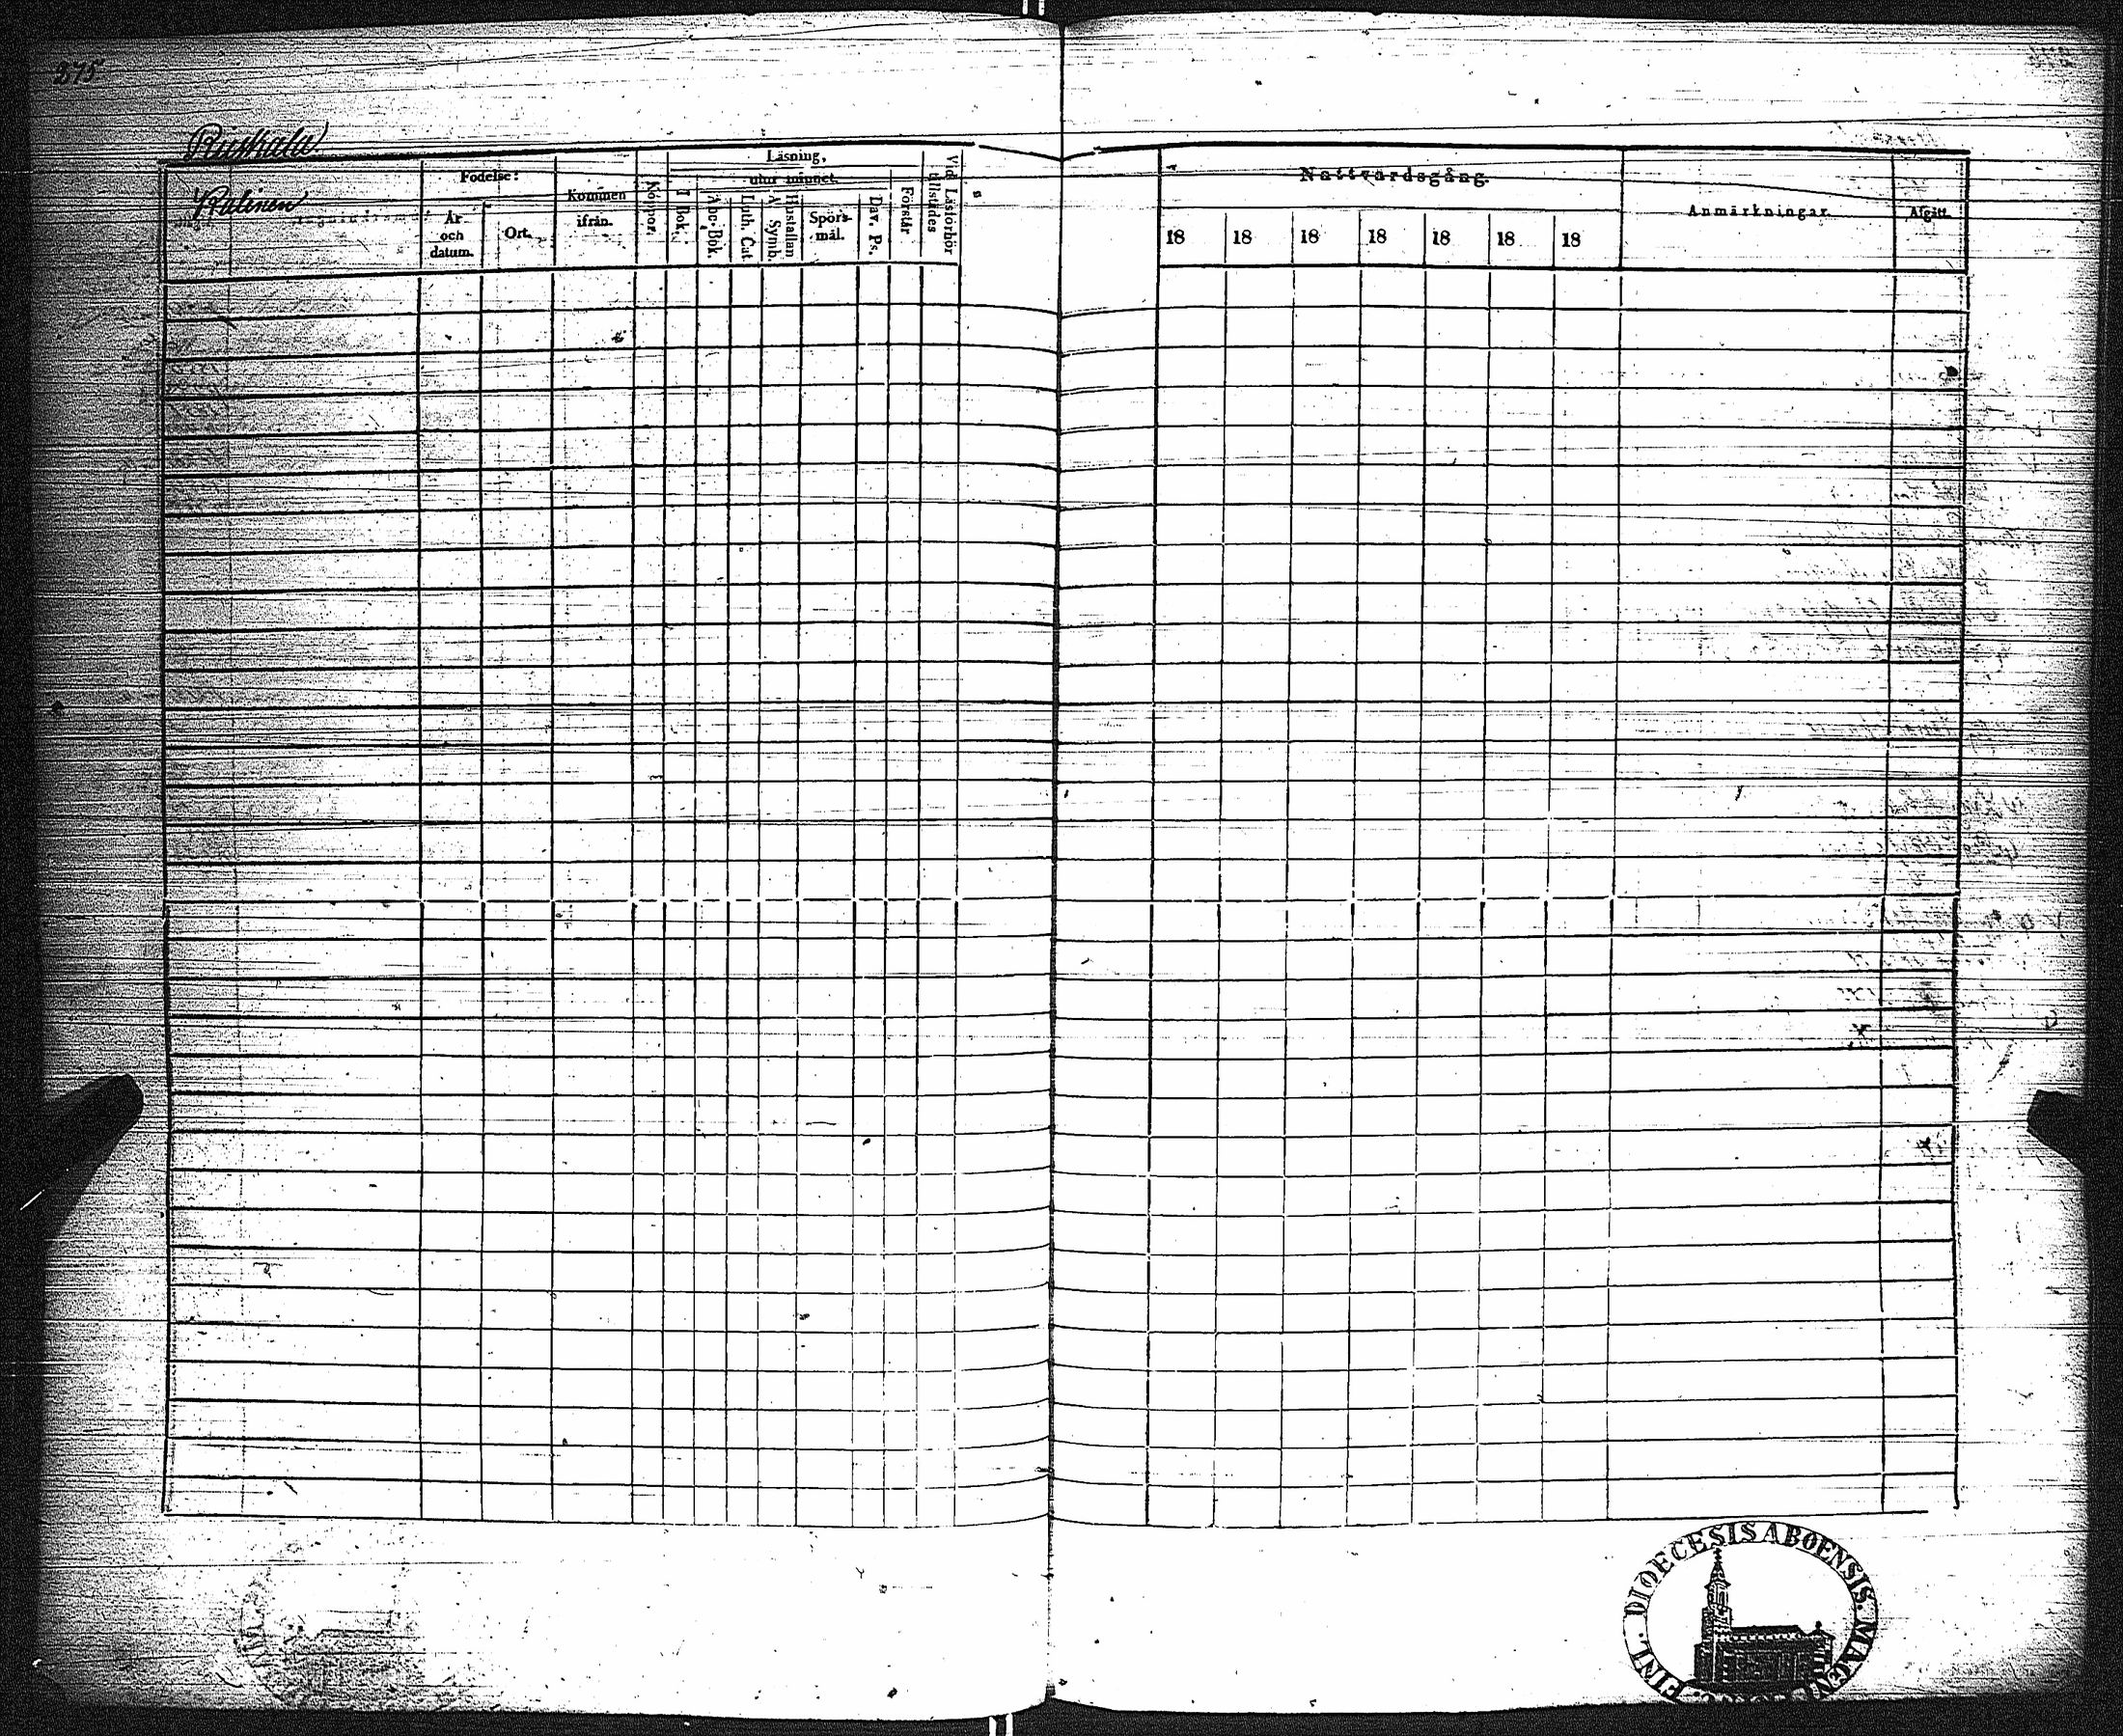 275
Ruskala
Kalinen
Födelse:
År och datum.
Ort.
Kommen ifrån.
Koppor.
Läsning,
utur minnet.
I Bok.
Abc-Bok.
Luth. Cat
Hustaflan A. Symb.
Spörsmål.
Dav. Ps.
Förstår
Vid Läsförhör tillstädes
Nattvardsgång.
18 18 18 18 18 18 18
Anmärkningar.
Afgått.
DIOECESIS ABOENSIS. MAGNI
FINL.